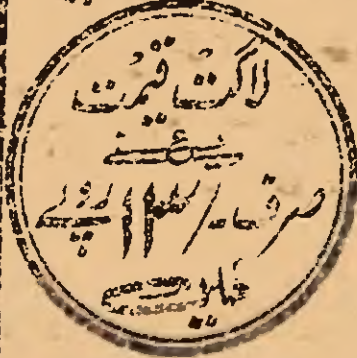 لاگت قیمت
یعنے
صرف -/۱۳ روپے